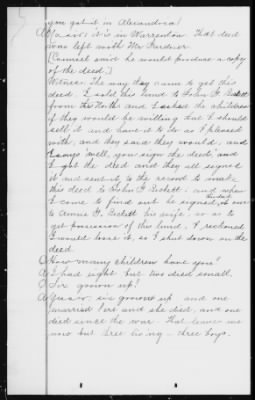 you got it in Alexandria?
A. No sir, it is in Warrenton. That deed
was left with Mr Gardner.
(Counsel said he would produce a copy
of the deed.)
Witness: The way they came to get this
deed. I sold this land to John G. Beckett
from the North and I asked the children
if they would be willing that I should
sell it and have it to do as I pleased
with, and they said they would, and
I says well, you sign the deed, and
I got the deed and they all signed
it and sent it, to the record to make
this deed to John G. Beckett: and when
I come to find out he signed, it over
to Annie G. Beckett his wife, so as to
get possession of this land, I reckoned
I would lose it, so I shut down on the
deed.
Q How many children have you?
A I had eight but two died small.
Q Six grown up?
A Yes sir. six growed up and one
married Port and she died, and one
died since the war. That leaves me
now but three living - three boys.